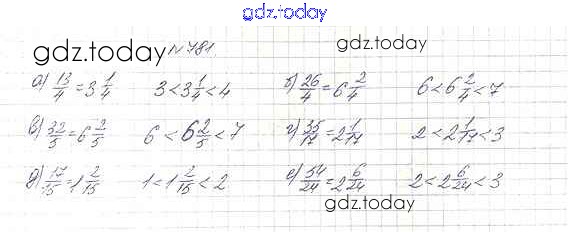 gdz.today
gdz.today №781 gdz.today
а) 13/4 = 3 1/4 3 < 3 1/4 < 4 б) 26/4 = 6 2/4 6 < 6 2/4 < 7
в) 32/5 = 6 2/5 6 < 6 2/5 < 7 г) 35/17 = 2 1/17 2 < 2 1/17 < 3
д) 17/15 = 1 2/15 1 < 1 2/15 < 2 е) 54/24 = 2 6/24 2 < 2 6/24 < 3
gdz.today